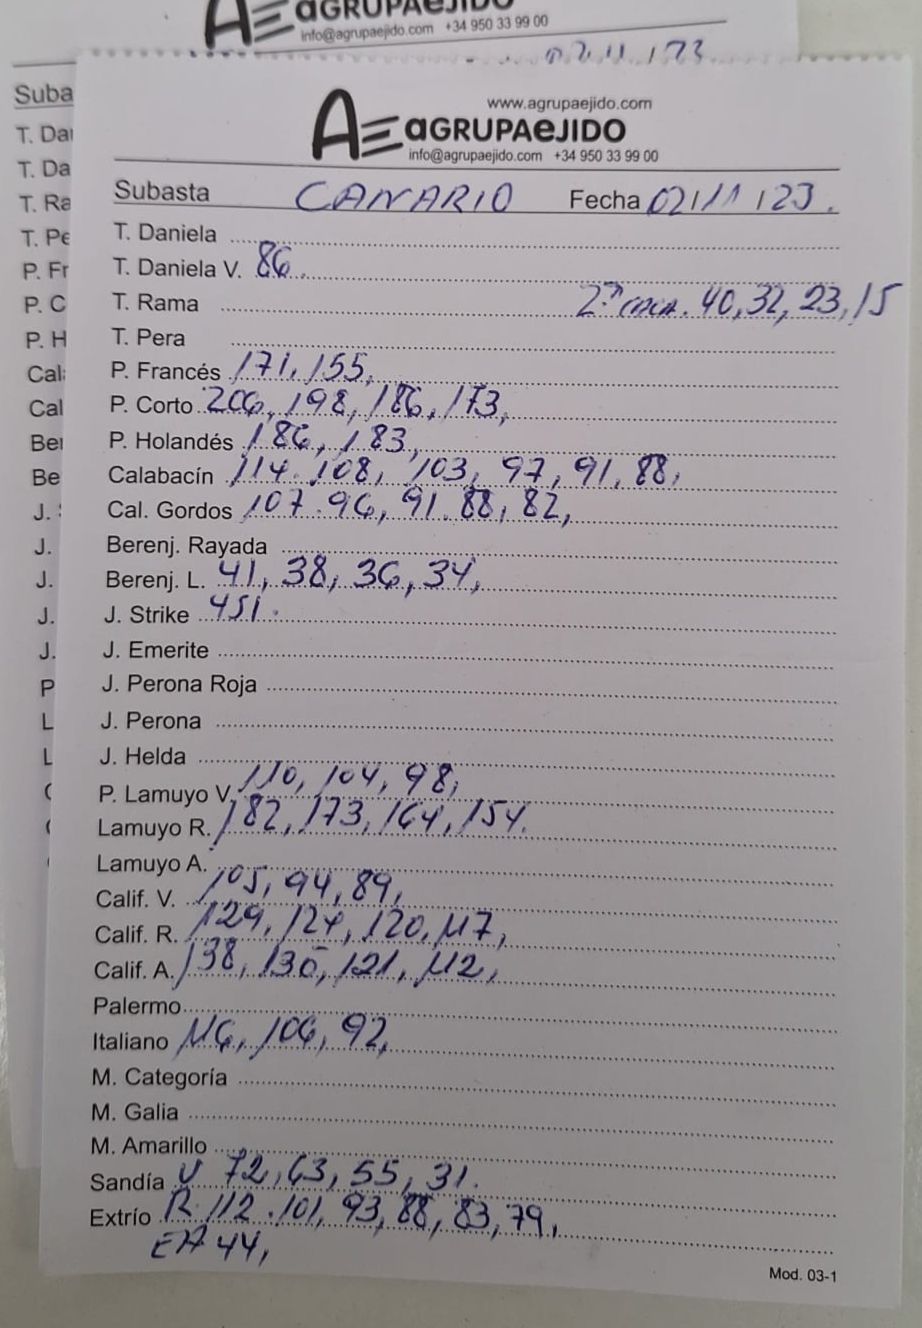 AGRUPAEJIDO
info@agrupaejido.com +34 950 33 99 00
02.11.123
Suba
T. Da
T. Da
T. Ra
T. Pe
P. Fr
P. C
P. H
Cal
Cal
Ber
Be
J. S
J.
J.
J.
J.
P
L
L
www.agrupaejido.com
AE aGRUPAeJIDO
info@agrupaejido.com +34 950 33 99 00
Subasta CANARIO Fecha 02/11/23.
T. Daniela
T. Daniela V. 86.
T. Rama 40, 32, 23, 15
T. Pera
P. Francés 171, 155,
P. Corto 206, 198, 186, 173,
P. Holandés 186, 183,
Calabacín 114. 108, 103, 97, 91, 88,
Cal. Gordos 107. 96, 91. 88, 82,
Berenj. Rayada
Berenj. L. 41, 38, 36, 34,
J. Strike 451.
J. Emerite
J. Perona Roja
J. Perona
J. Helda
P. Lamuyo V. 110, 104, 98,
Lamuyo R. 182, 173, 164, 154.
Lamuyo A.
Calif. V. 105, 94, 89,
Calif. R. 129, 124, 120, 117,
Calif. A. 138, 130, 121, 112,
Palermo
Italiano 116, 106, 92,
M. Categoría
M. Galia
M. Amarillo
Sandía V 72, 63, 55, 31.
Extrío R. 112. 101, 93, 88, 83, 79,
44,
Mod. 03-1